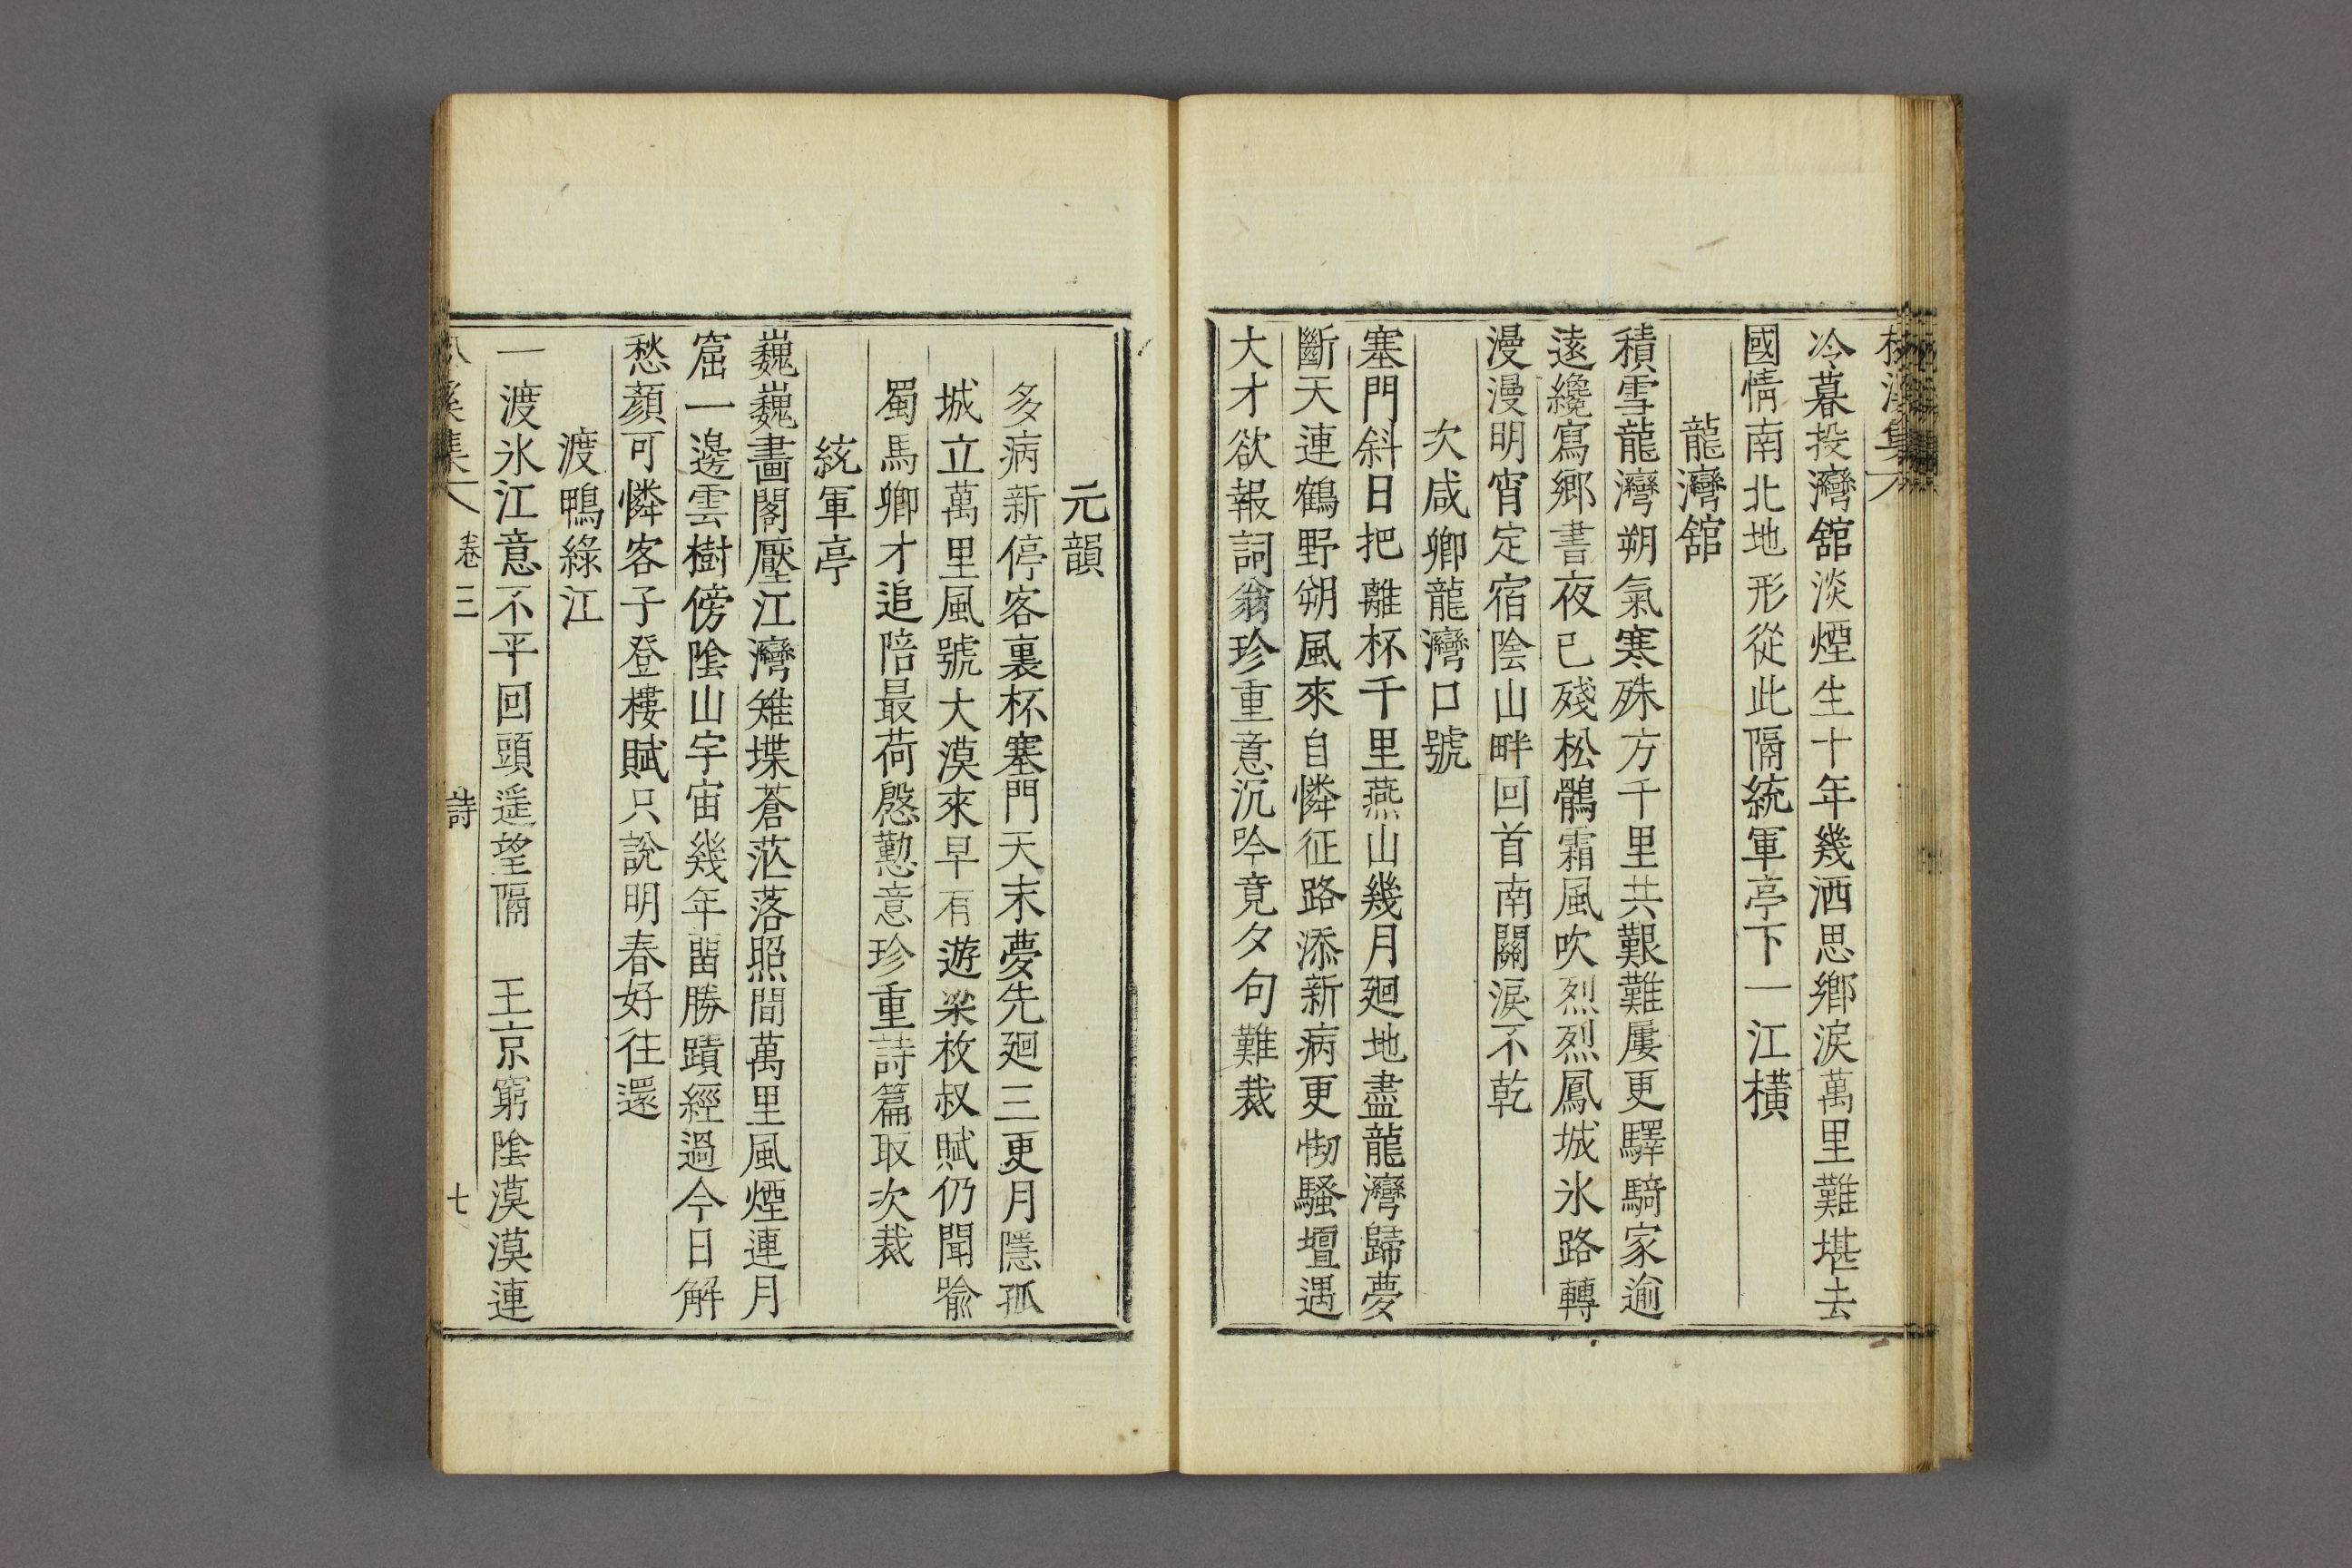 冷暮投灣館淡煙生十年幾洒思鄉淚萬里難堪去
國情南北地形從此隔統軍亭下一江橫
龍灣館
積雪龍灣朔氣寒殊方千里共艱難屢更驛騎家逾
遠纔寫鄉書夜已殘松鶻霜風吹烈烈鳳城氷路轉
漫漫明宵定宿陰山畔回首南關淚不乾
次咸卿龍灣口號
塞門斜日把離杯千里燕山幾月廻地盡龍灣歸夢
斷天連鶴野朔風來自憐征路添新病更㤼騷壇遇
大才欲報詞翁珍重意沉吟竟夕句難裁
元韻
多病新停客裏杯塞門天末夢先廻三更月隱孤
城立萬里風號大漠來早有遊梁枚叔賦仍聞喩
蜀馬卿才追陪最荷慇懃意珍重詩篇取次裁
統軍亭
巍巍畵閣壓江灣雉堞蒼茫落照間萬里風煙連月
窟一邊雲樹傍陰山宇宙幾年留勝蹟經過今日解
愁顏可憐客子登樓賦只說明春好徃還
渡鴨綠江
一渡氷江意不平回頭遥望隔 王京窮陰漠漠連
溪集 卷三 詩 七